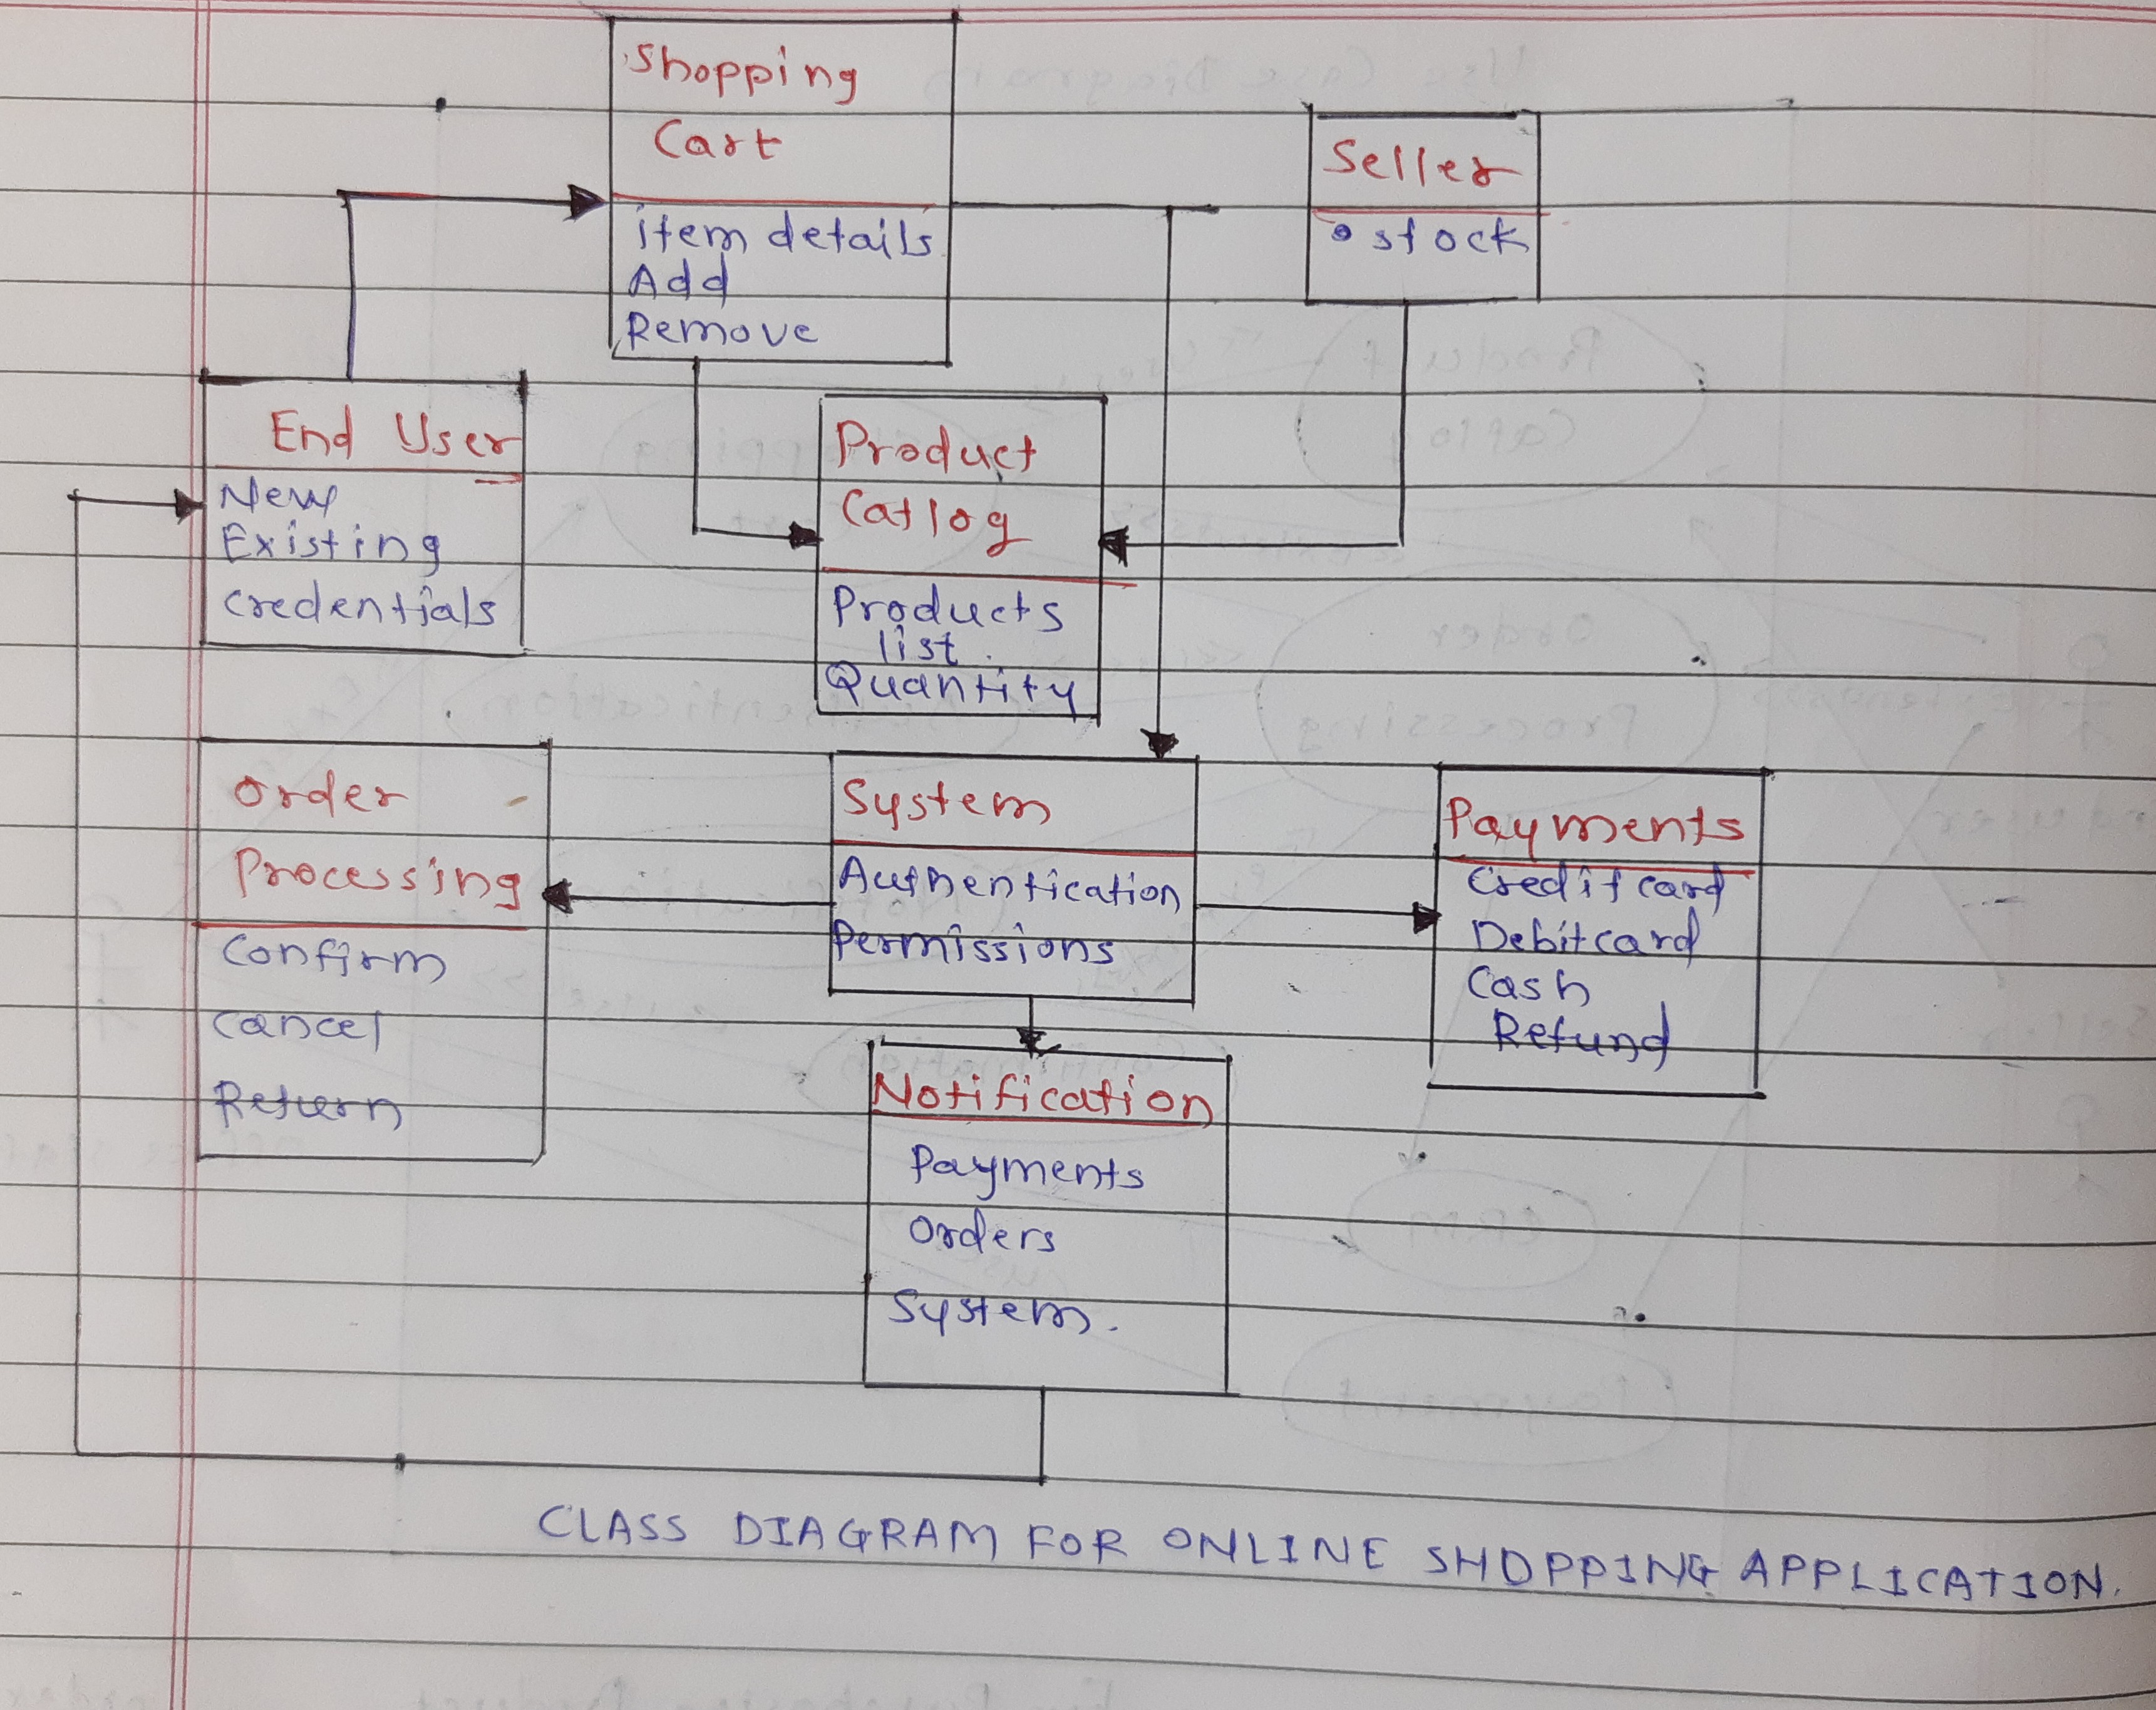 Shopping
Cart
item details
Add
Remove
Seller
stock
End User
New
Existing
credentials
Product
Catlog
Products
list.
Quantity
Order
Processing
Confirm
cancel
Return
System
Authentication
Permissions
Payments
Credit card
Debit card
Cash
Refund
Notification
Payments
Orders
System.
CLASS DIAGRAM FOR ONLINE SHOPPING APPLICATION.